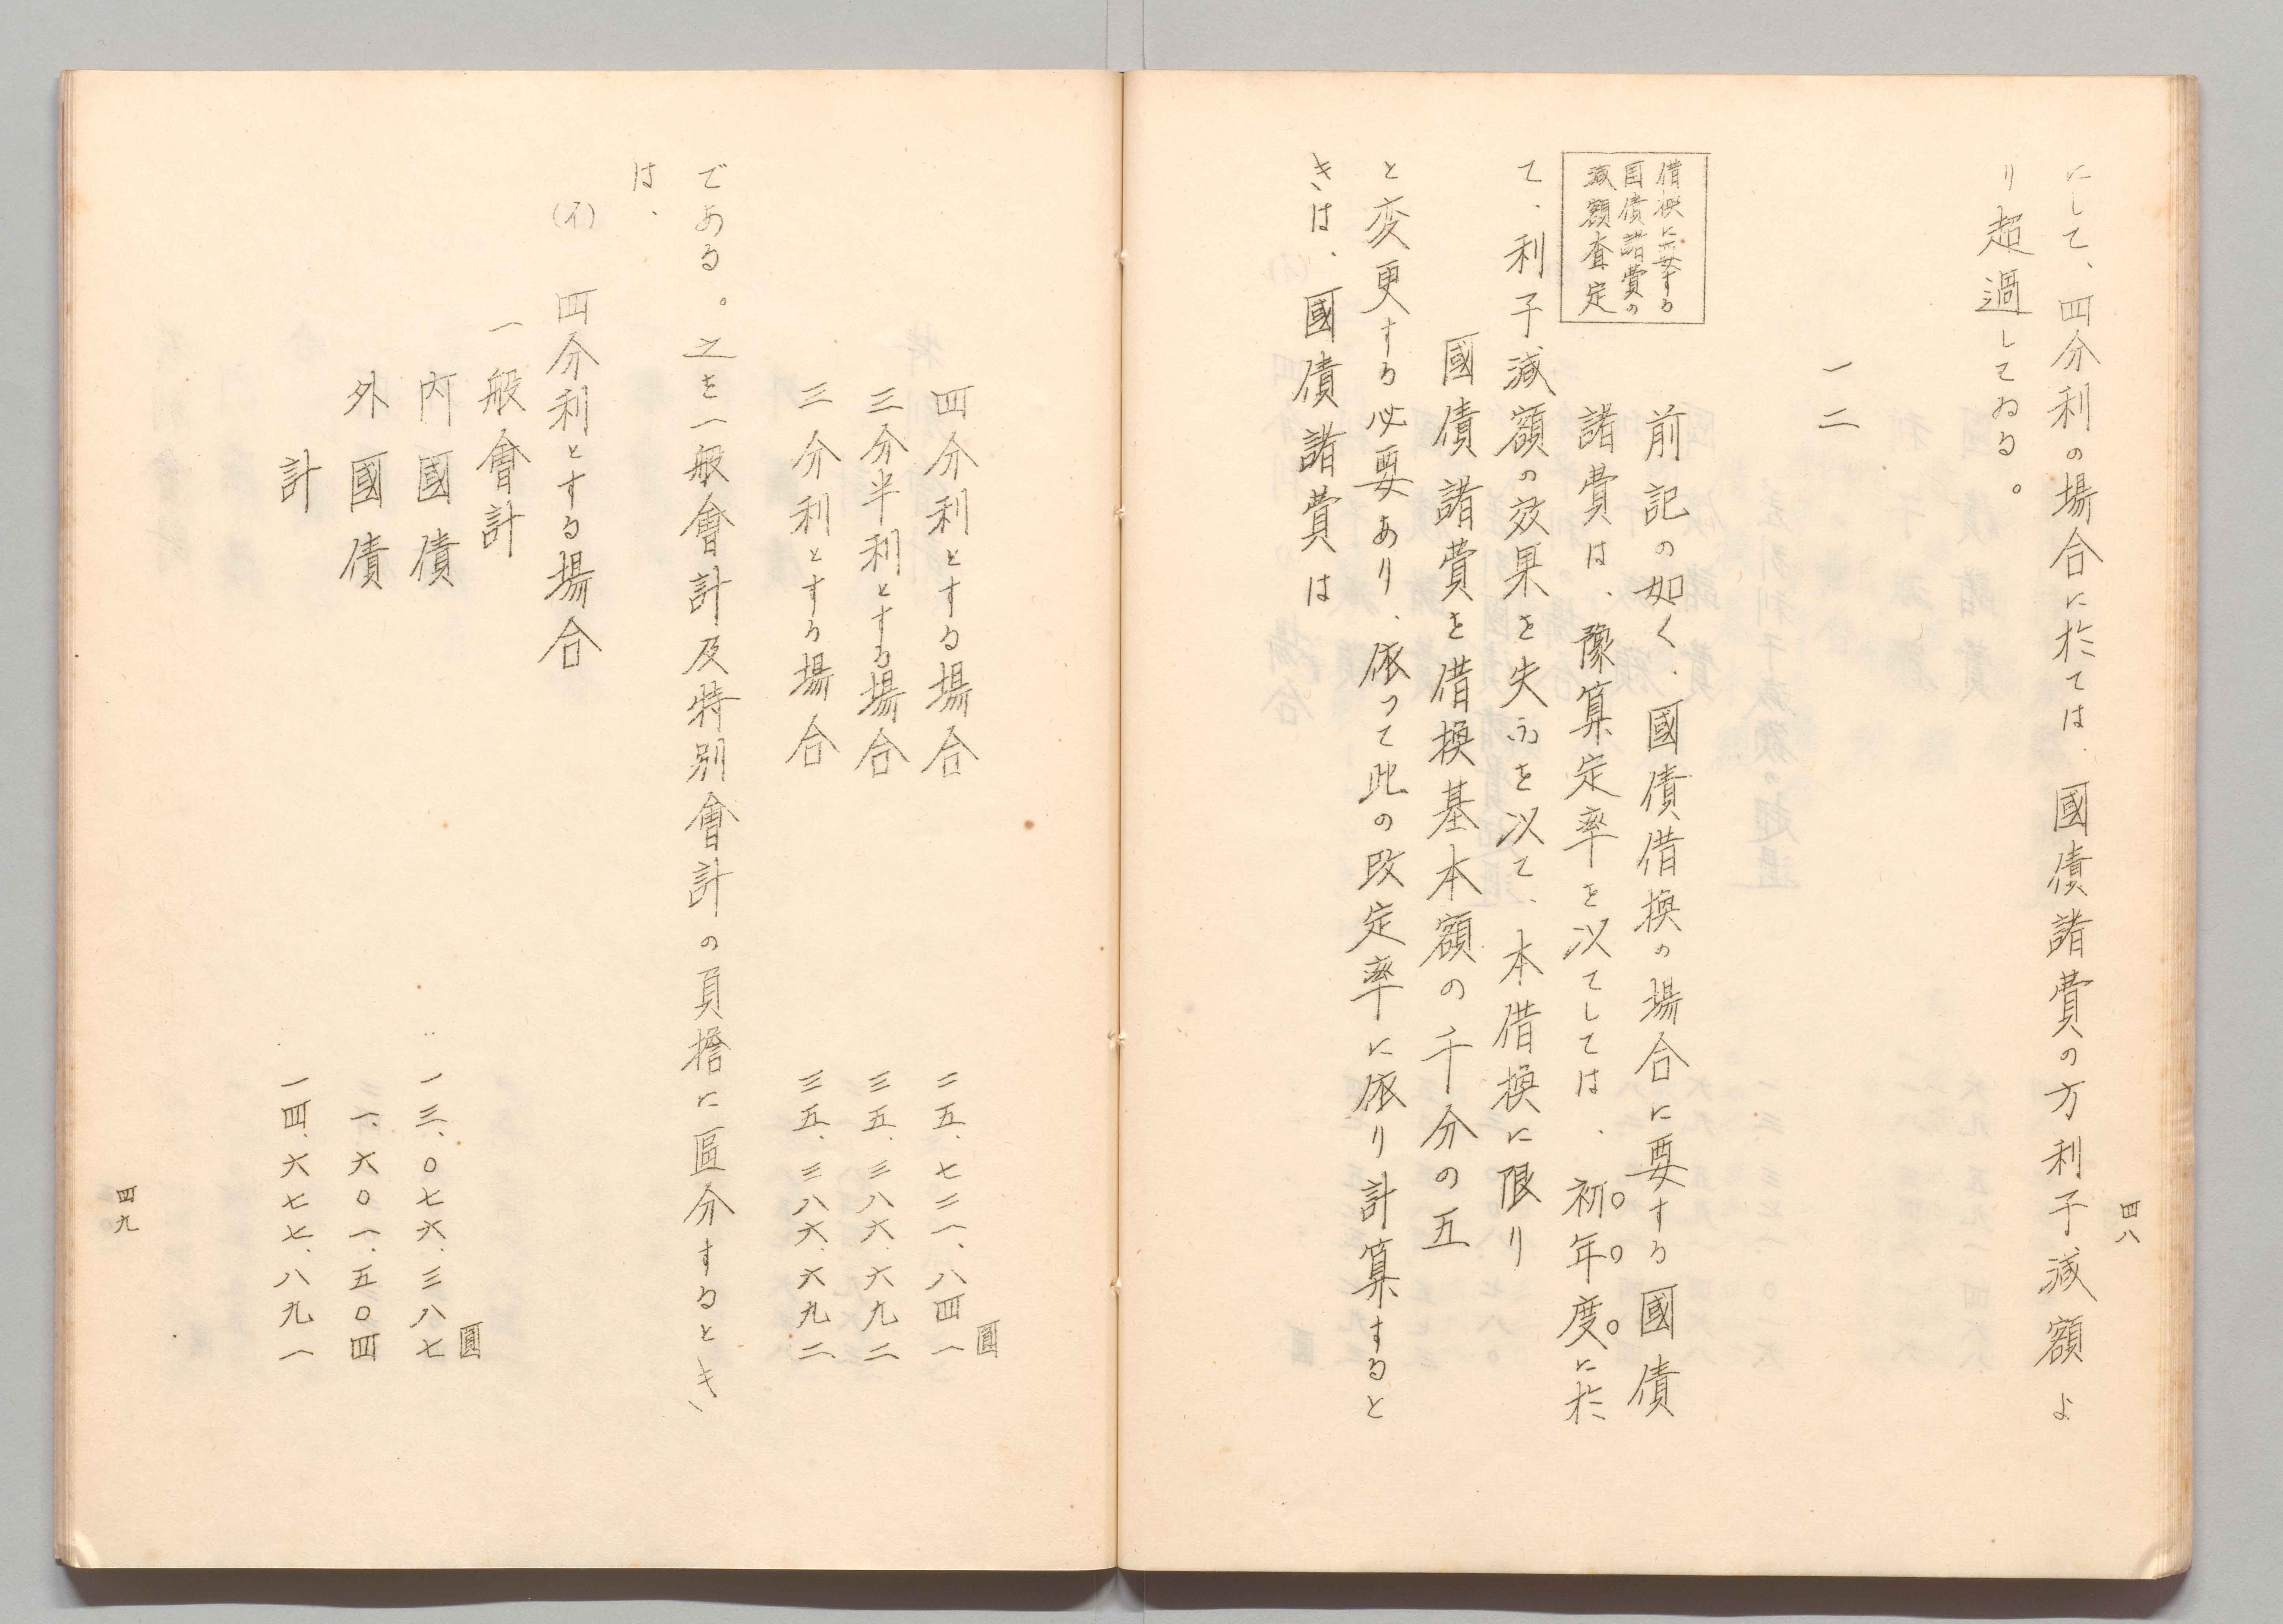 四八
にして、四分利の場合に於ては、國債諸費の方利子減額よ
り超過してゐる。
一二
借換に要する
国債諸費の
減額査定
前記の如く、國債借換の場合に要する國債
諸費は、豫算定率を以てしては、初年度に於
て、利子減額の效果を失ふを以て、本借換に限り
國債諸費を借換基本額の千分の五
と変更する必要あり、依って此の改定率に依り計算すると
きは、國債諸費は
圓
四分利とする場合 二五、七三一、八四一
三分半利とする場合 三五、三八六、六九二
三分利とする場合 三五、三八六、六九二
である。之を一般會計及特別會計の負擔に區分するとき
は、
(イ) 四分利とする場合
一般會計
圓
内國債 一三、〇七六、三八七
外國債 一、六〇一、五〇四
計 一四、六七七、八九一
四九